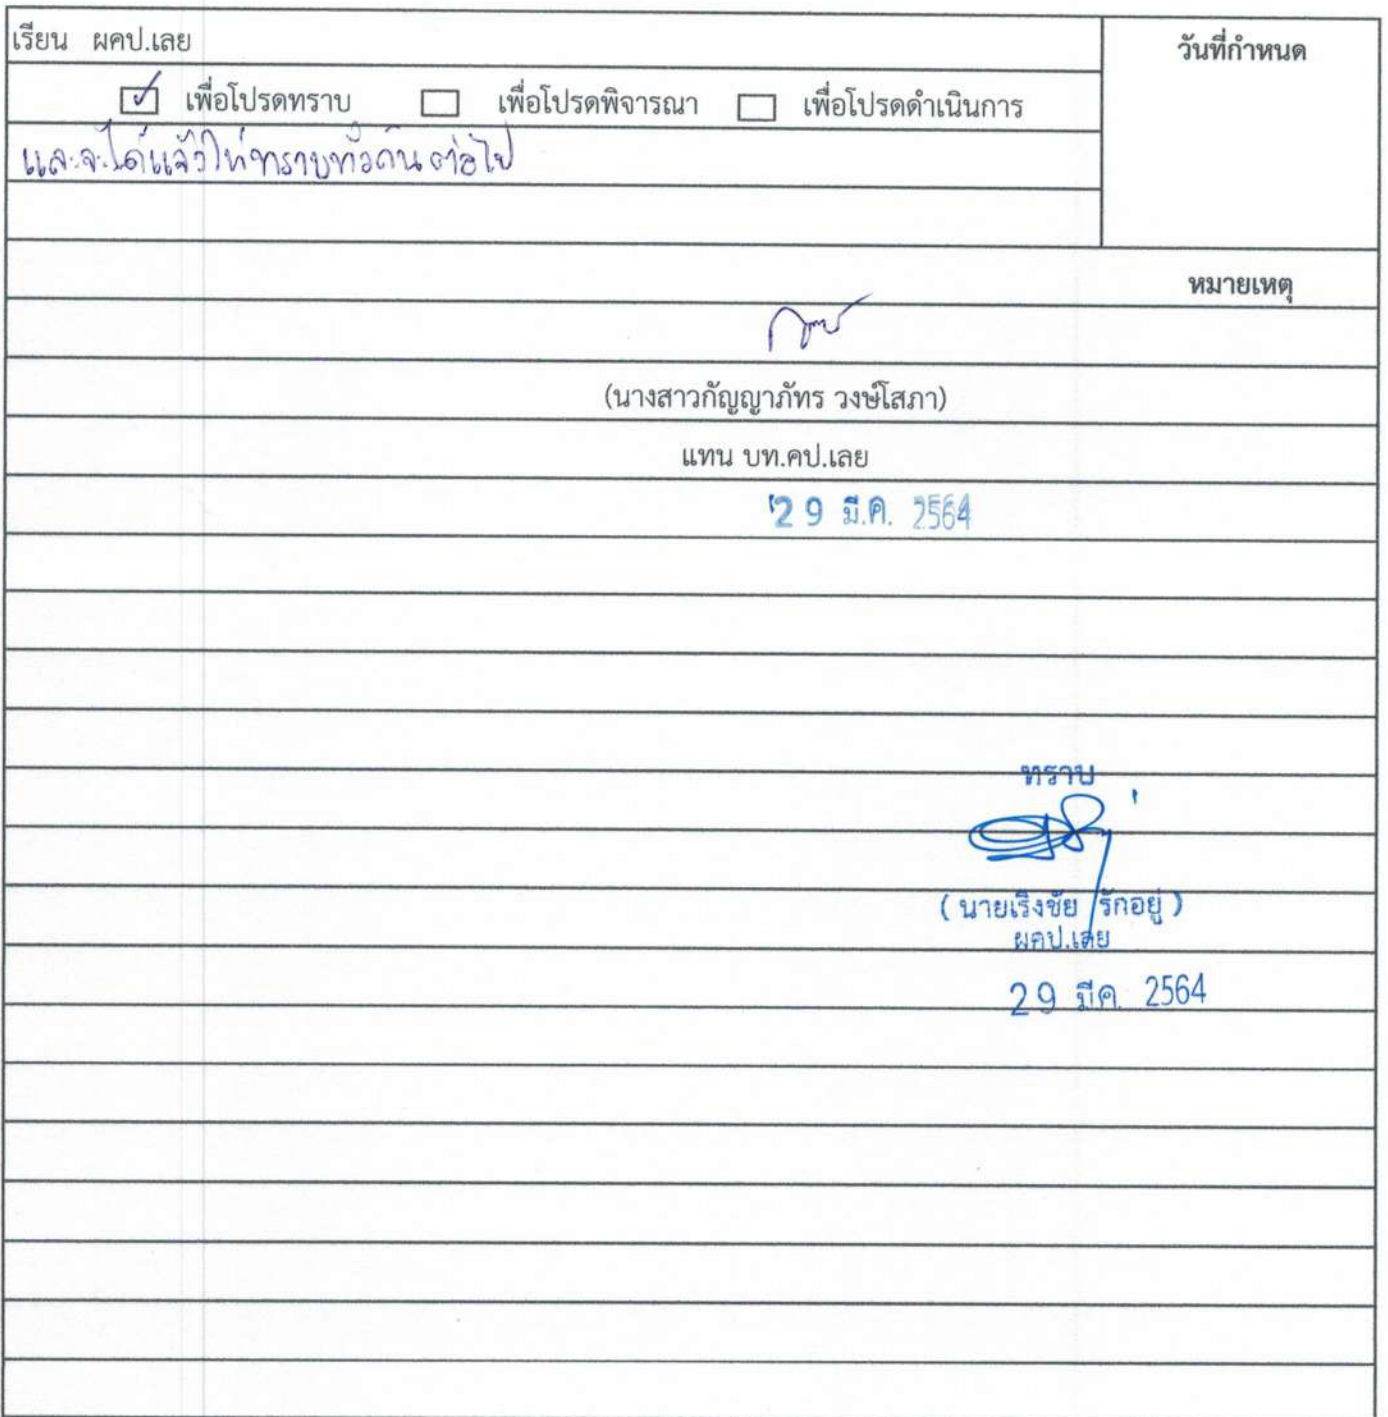 เรียน ผคป.เลย
วันที่กำหนด
เพื่อโปรดทราบ เพื่อโปรดพิจารณา เพื่อโปรดดำเนินการ
และจะได้แจ้งให้ทราบทั่วกันต่อไป
หมายเหตุ
(นางสาวกัญญาภัทร วงษ์โสภา)
แทน บท.คป.เลย
29 มี.ค. 2564
ทราบ
( นายเริงชัย รักอยู่ )
ผคป.เลย
29 มีค. 2564